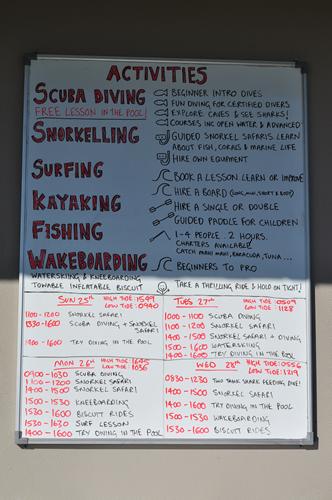 ACTIVITIES
SCUBA DIVING
FREE LESSON IN THE POOL!
BEGINNER INTRO DIVES
FUN DIVING FOR CERTIFIED DIVERS
EXPLORE CAVES & SEE SHARKS!
COURSES INC OPEN WATER & ADVANCED
SNORKELLING
GUIDED SNORKEL SAFARIS. LEARN
ABOUT FISH, CORALS & MARINE LIFE
HIRE OWN EQUIPMENT
SURFING
BOOK A LESSON LEARN OR IMPROVE
HIRE A BOARD
KAYAKING
HIRE A SINGLE OR DOUBLE
GUIDED PADDLE FOR CHILDREN
FISHING
1-4 PEOPLE. 2 HOURS.
CHARTERS AVAILABLE
CATCH MAHI MAHI, BARACUDA, TUNA...
WAKEBOARDING
BEGINNERS TO PRO
WATERSKIING & KNEEBOARDING
TOWABLE INFLATABLE BISCUIT
TAKE A THRILLING RIDE & HOLD ON TIGHT!
SUN 25th HIGH TIDE: 1549
LOW TIDE: 0940
1100-1200 SNORKEL SAFARI
1330-1600 SCUBA DIVING + SNORKEL
SAFARI
1400-1600 TRY DIVING IN THE POOL
TUES 27th HIGH TIDE: 0509
LOW TIDE: 1128
1000-1100 SCUBA DIVING
1100-1200 SNORKEL SAFARI
1400-1500 SNORKEL SAFARI + DIVING
1500-1600 WATERSKIING
1400-1600 TRY DIVING IN THE POOL
MON 26th HIGH TIDE: 1645
LOW TIDE: 1036
0900-1030 SCUBA DIVING
1100-1200 SNORKEL SAFARI
1400-1500 SNORKEL SAFARI
1500-1530 KNEEBOARDING
1530-1600 BISCUIT RIDES
1530-1630 SURF LESSON
1400-1600 TRY DIVING IN THE POOL
WED 28th HIGH TIDE: 0556
LOW TIDE: 1219
0830-1230 TWO TANK SHARK FEEDING DIVE!
1400-1500 SNORKEL SAFARI
1400-1600 TRY DIVING IN THE POOL
1500-1530 WAKEBOARDING
1530-1600 BISCUIT RIDES